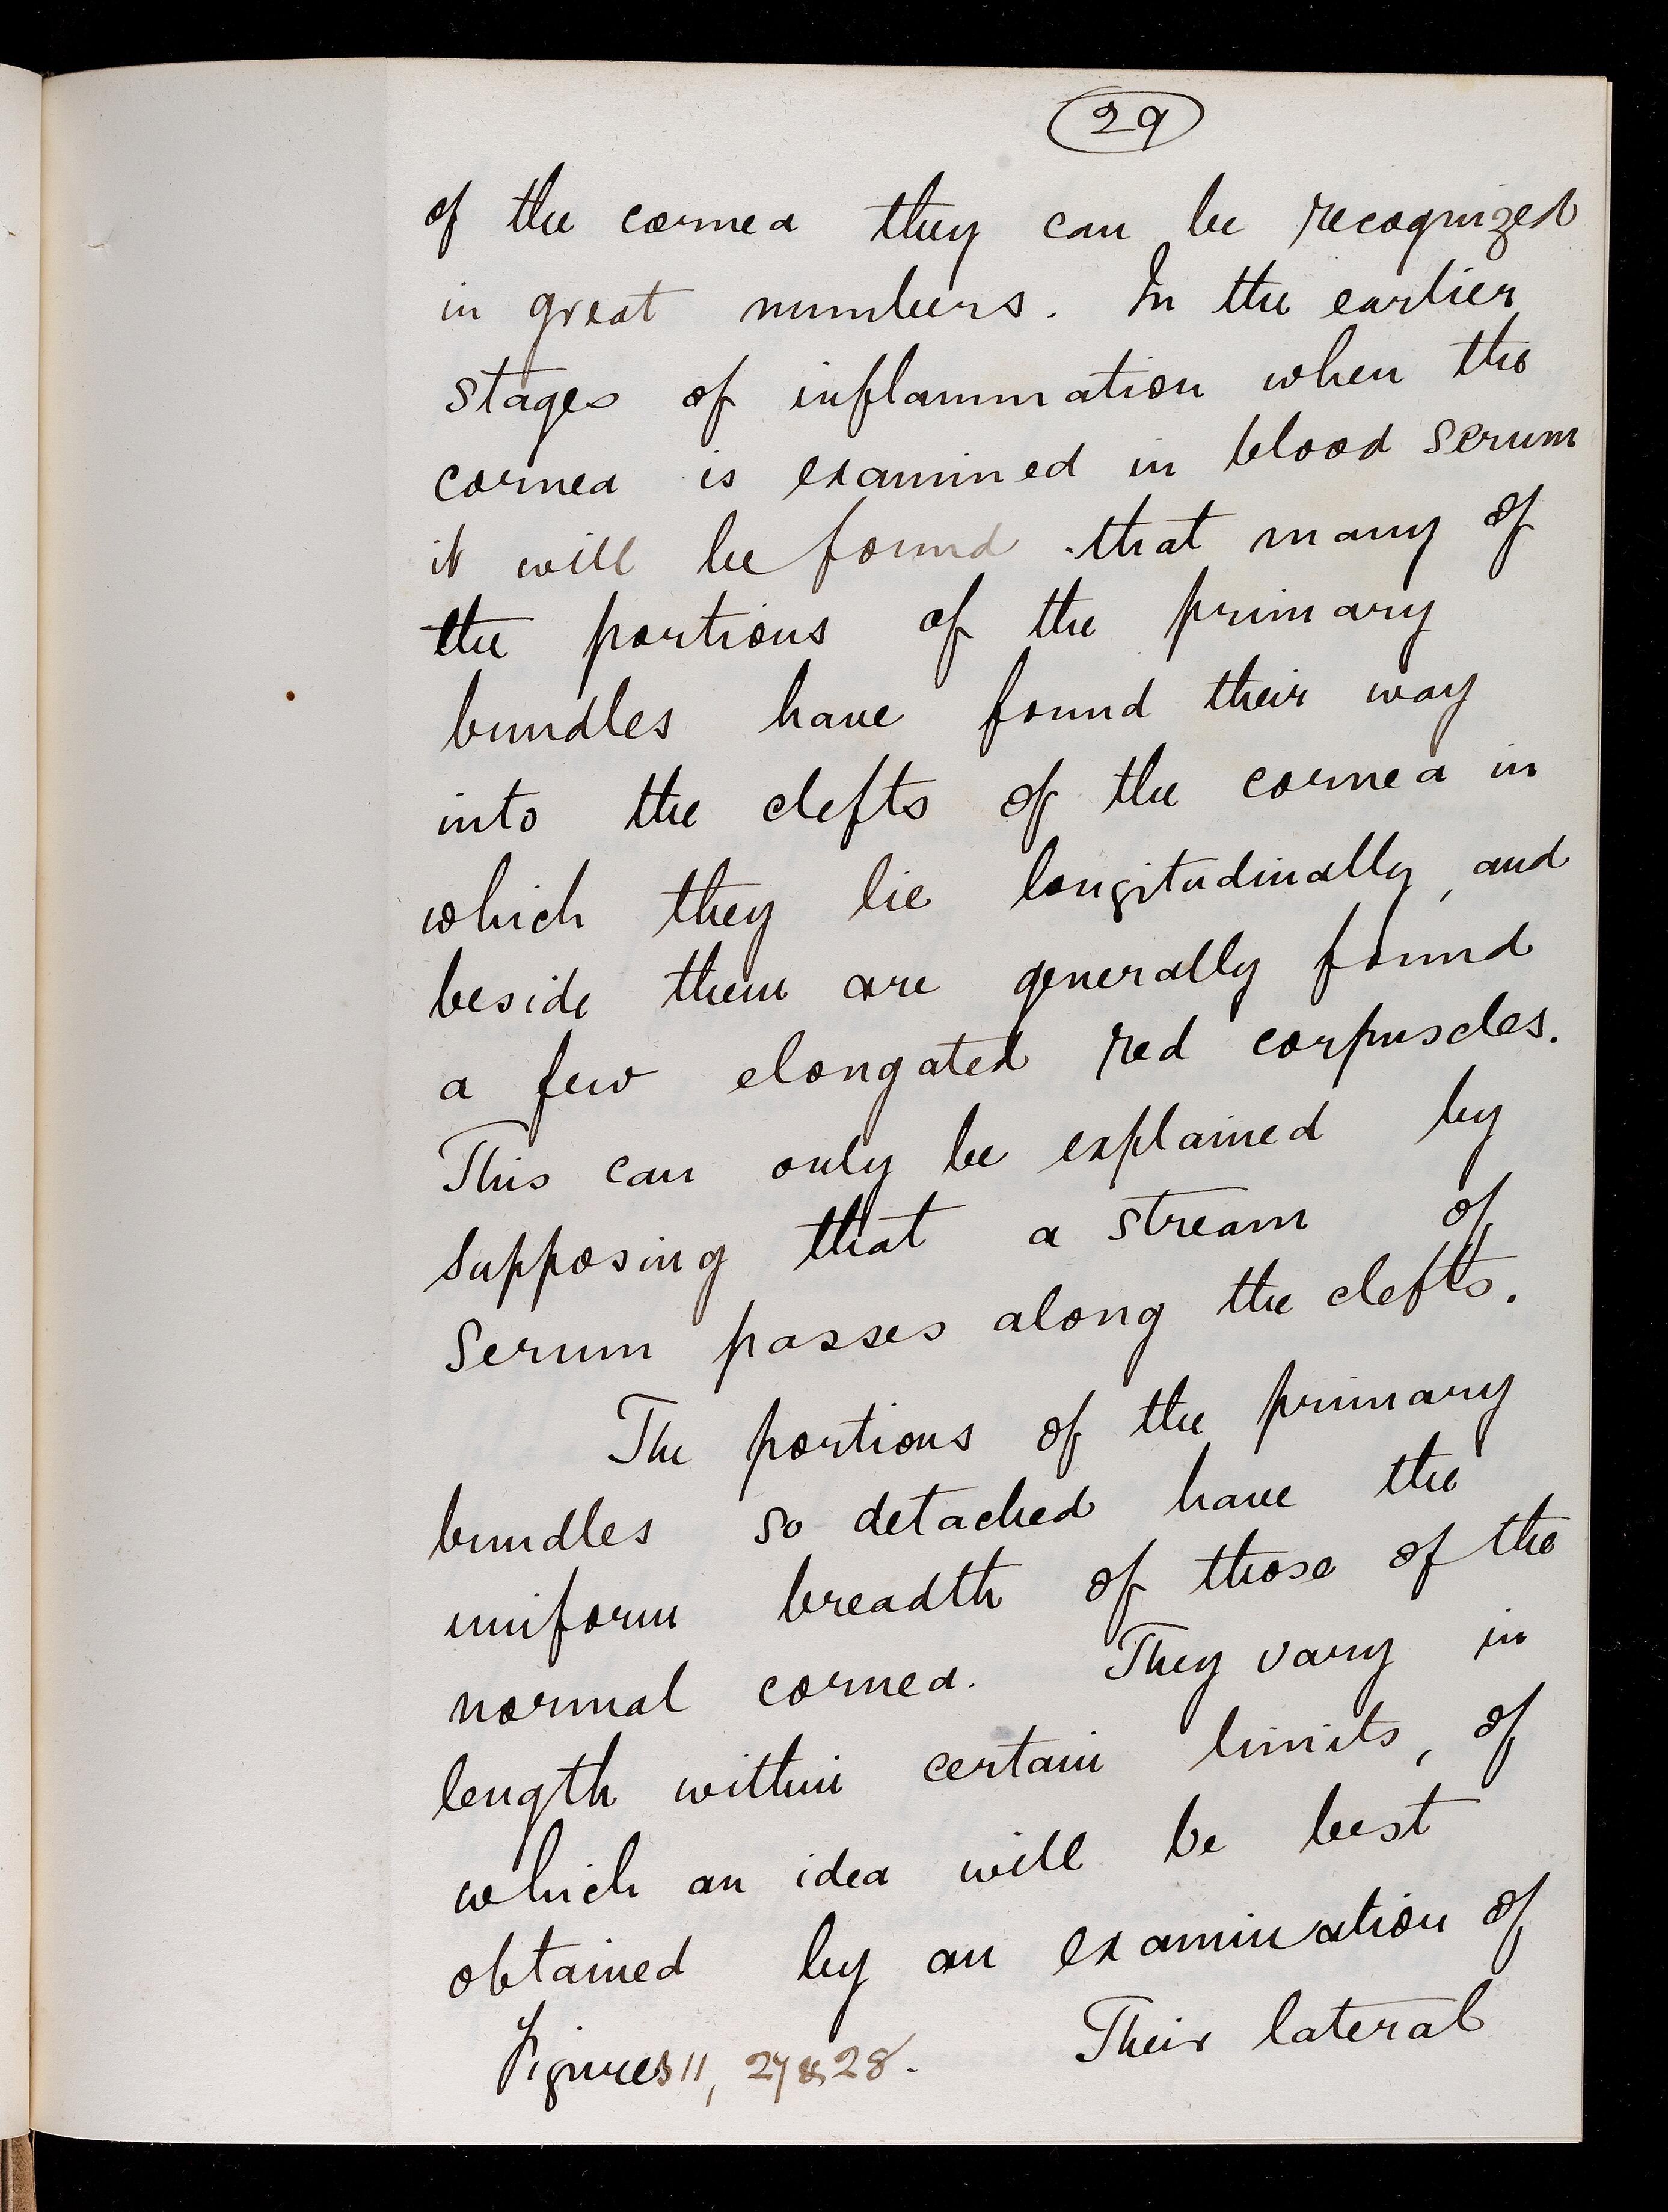 29
of the cornea they can be recognized
in great numbers. In the earlier
stages of inflammation when the
cornea is examined in blood serum
it will be found that many of
the portions of the primary
bundles have found their way
into the clefts of the cornea in
which they lie longitudinally, and
beside them are generally found
a few elongated red corpuscles.
This can only be explained by
supposing that a stream of
serum passes along the clefts.
The portions of the primary
bundles so detached have the
uniform breadth of those of the
normal cornea. They vary in
length within certain limits, of
which an idea will be best
obtained by an examination of
Figures 11, 27 & 28. Their lateral